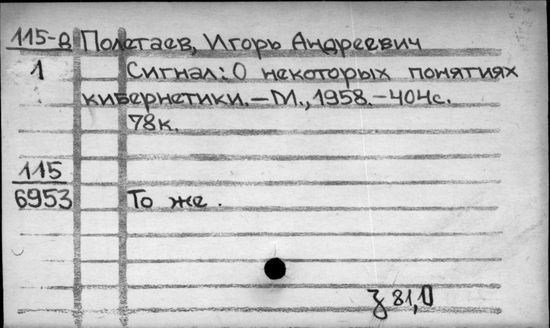 115-8 Полетаев, Игорь Андреевич
1 Сигнал: О некоторых понятиях
кибернетики. – М., 1958. – 404с.
78к.
115
6953 То же.
З 81,0